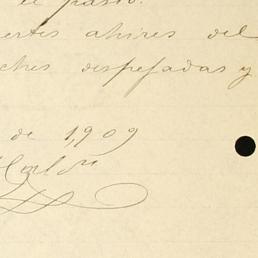 el pasto.
ertes ahires del
ches despejadas y
de 1,909